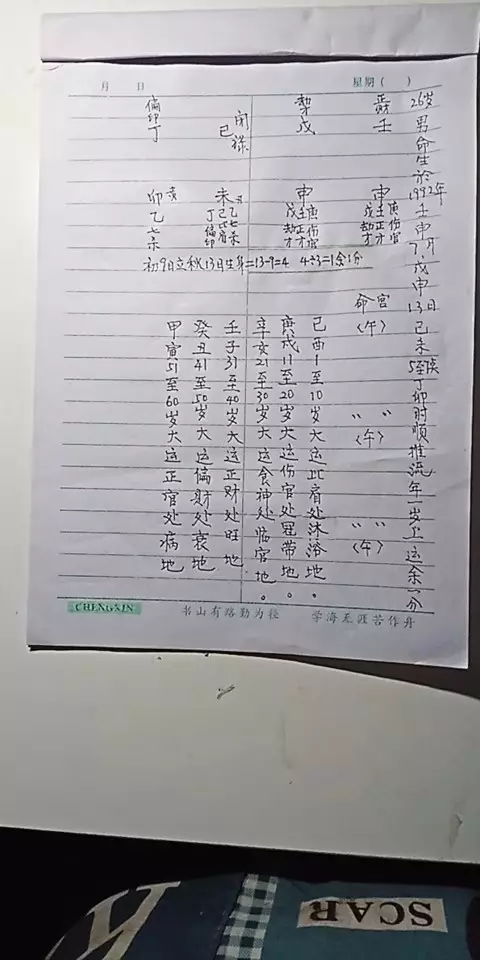 月 日 星期( )
26岁男命生於1992年壬申7月戊申13日己未5至7点丁卯时顺推流年一岁上运余一分
正财
壬
劫才
戊
闲禄
己
偏印
丁
申
戊壬庚
劫正伤
才才官
申
戊壬庚
劫正伤
才才官
未
丁己乙
偏比七
印肩杀
卯
乙
七杀
初9日立秋13日生身=13-9=4 4÷3=1余1分
命宫
(午)
〃 〃
(午)
〃 〃
(午)
己酉1至10岁大运比肩处沐浴地。
庚戌11至20岁大运伤官处冠带地。
辛亥21至30岁大运食神处临官地。
壬子31至40岁大运正财处旺地
癸丑41至50岁大运偏财处衰地
甲寅51至60岁大运正官处病地
CHENGXIN 书山有路勤为径 学海无涯苦作舟
SCAR